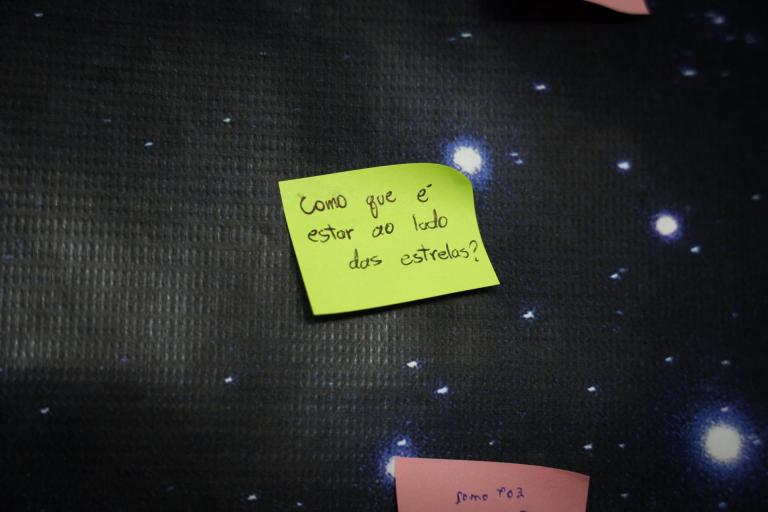 Como que é
estar ao lado
das estrelas?